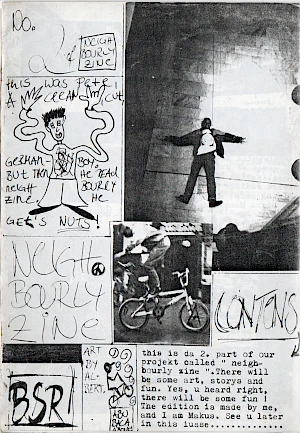 No.
2 of
NEIGH
BOURLY
ZINE
this WAS Pete!
A CLEAN CUT,
GERMAN- BOY.
BUT THEN HE READ
neigh BOURLY
zine. HE
GET'S NUTS!
NEIGH
BOURLY
ZINE
CONTENS
BSR
ART
BY
AL-
BERT.
ABU
this is da 2. part of our
projekt called " neigh-
bourly zine ".There will
be some art, storys and
fun. Yes, u heard right,
there will be some fun !
The edition is made by me,
and I am Makus. See u later
in this iusse..............